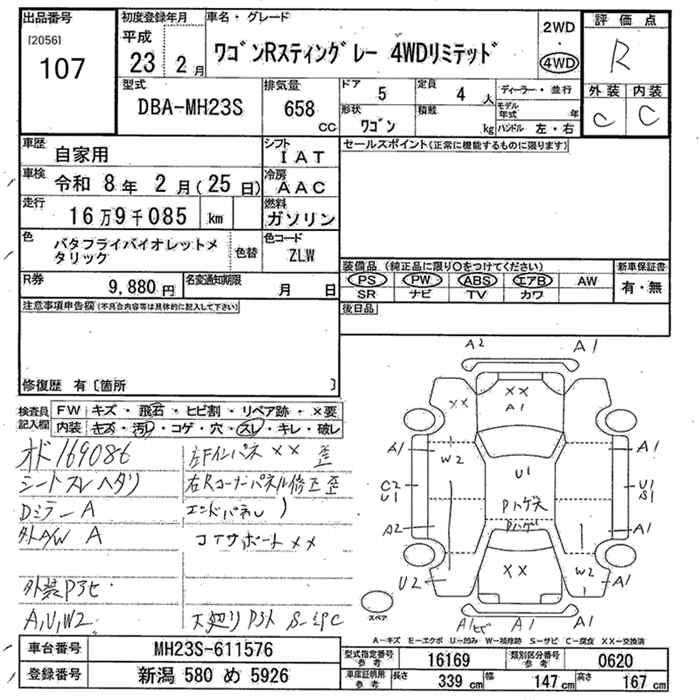 出品番号 初度登録年月 車名・グレード 評価点
[2056] 107 平成 23 2月 ワゴンRスティングレー 4WDリミテッド 2WD・4WD R
型式 DBA-MH23S 排気量 658 CC ドア 5 定員 4 人 ディーラー・並行 外装 C 内装 C
形状 ワゴン 積載 kg モデル年式 年 ハンドル 左・右
車歴 自家用 シフト IAT セールスポイント(正常に機能するものに限ります)
車検 令和 8年 2月(25日) 冷房 AAC
走行 16万9千085 km 燃料 ガソリン
色 バタフライバイオレットメタリック 色替 色コード ZLW
R券 9,880円 名変通知期限 月 日
装備品(純正品に限り○をつけてください) 新車保証書
PS PW ABS エアB AW 有・無
SR ナビ TV カワ
注意事項申告欄(不具合内容等は具体的に記入して下さい) 後日品
修復歴 有〔箇所 〕
検査員記入欄 FW キズ・飛石・ヒビ割・リペア跡・×要
内装 キズ・汚レ・コゲ・穴・スレ・キレ・破レ
オド169086 左Fインパネ ×× 歪
シートスレ ヘタリ 右Rコーナーパネル修正歪
Dミラー A エンドパネル
外A/W A コアサポート ××
外装Pヨヒ
A,U,W2
A2 A1
×× ×× A1
A1 W2 A1
C2 U1 U1 U1 S1
Pハゲ大
A2 Pハゲ A1
U2 ×× W2 A1
スペア A1 A1
A－キズ E－エクボ U－凹み W－補修跡 S－サビ C－腐食 XX－交換済
車台番号 MH23S-611576 型式指定番号 参考 16169 類別区分番号 参考 0620
登録番号 新潟 580 め 5926 車庫証明用 参考 長さ 339 cm 幅 147 cm 高さ 167 cm